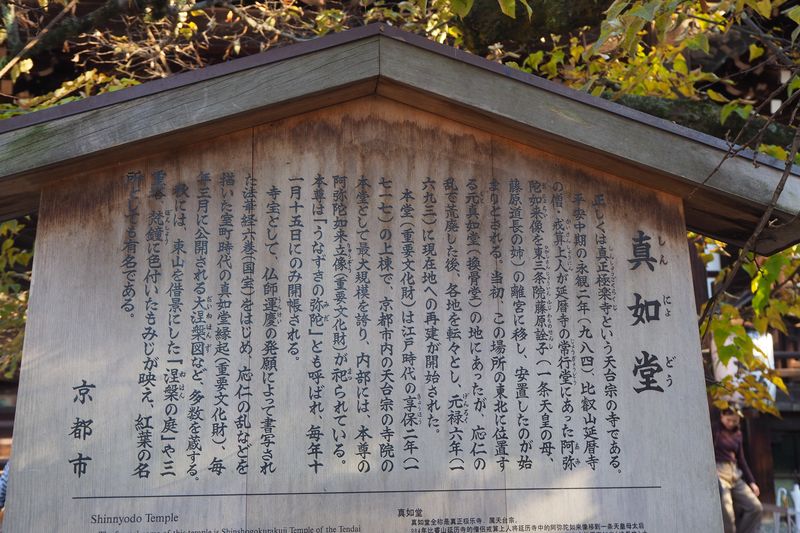 真如堂
正しくは真正極楽寺という天台宗の寺である。
平安中期の永観二年(九八四)、比叡山延暦寺
の僧、戒算上人が延暦寺の常行堂にあった阿弥
陀如来像を東三条院藤原詮子(一条天皇の母、
藤原道長の姉)の離宮に移し、安置したのが始
まりとされる。当初、この場所の東北に位置す
る元真如堂(換骨堂)の地にあったが、応仁の
乱で荒廃した後、各地を転々とし、元禄六年(一
六九三)に現在地への再建が開始された。
本堂(重要文化財)は江戸時代の享保二年(一
七一七)の上棟で、京都市内の天台宗の寺院の
本堂として最大規模を誇り、内部には、本尊の
阿弥陀如来立像(重要文化財)が祀られている。
本尊は「うなずきの弥陀」とも呼ばれ、毎年十
一月十五日にのみ開帳される。
寺宝として、仏師運慶の発願によって書写され
た法華経六巻(国宝)をはじめ、応仁の乱などを
描いた室町時代の真如堂縁起(重要文化財)、毎
年三月に公開される大涅槃図など、多数を蔵する。
秋には、東山を借景にした「涅槃の庭」や三
重塔、梵鐘に色付いたもみじが映え、紅葉の名
所としても有名である。
京都市
Shinnyodo Temple
this temple is Shinshogokurakuji Temple of the Tendai
真如堂
真如堂全称是真正极乐寺，属天台宗。
984年比睿山延历寺的僧侣戒算上人将延历寺中的阿弥陀如来像移到一条天皇母太后